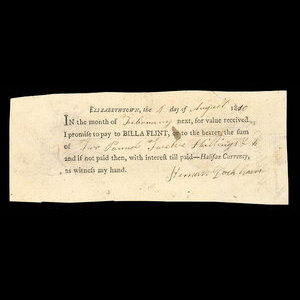 ELIZABETHTOWN, the 4 day of August 1810
IN the month of February next, for value received
I promise to pay to BILLA FLINT, or to the bearer, the sum
of Two Pound Twelve Shillings &
and if not paid then, with interest till paid—Halifax Currency,
as witness my hand.
Heman